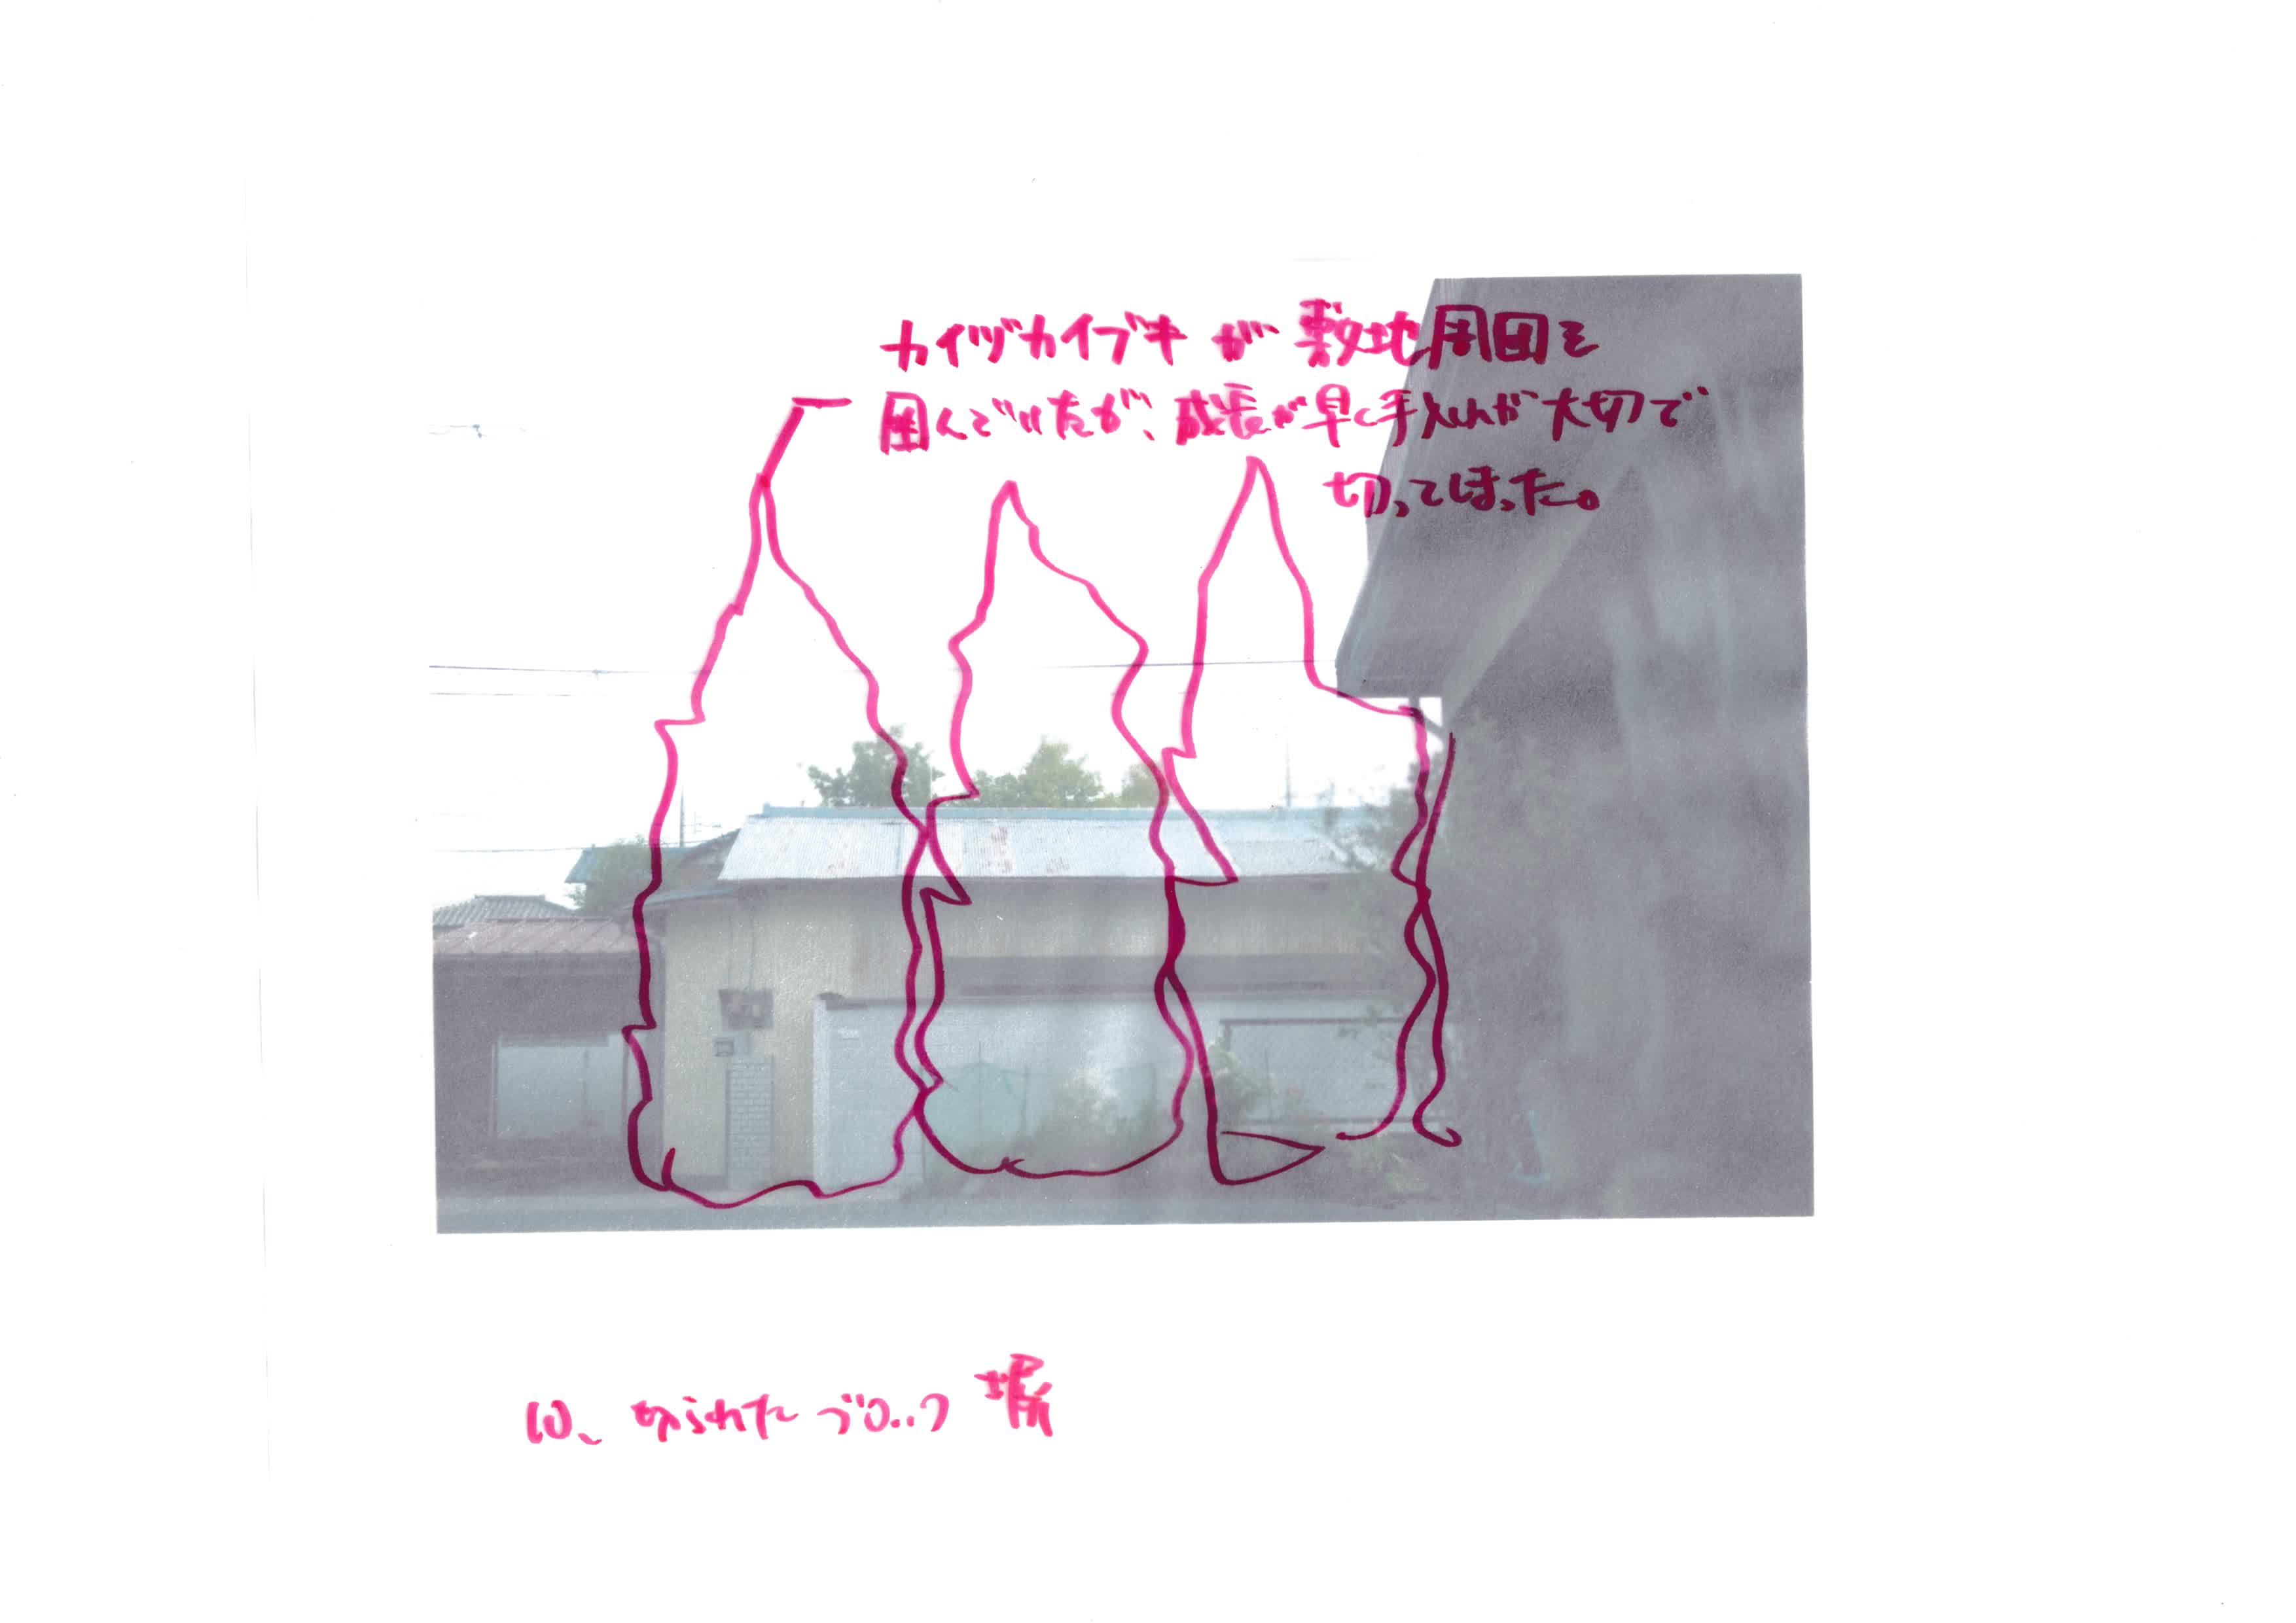 カイヅカイブキが敷地周囲を
囲んでいたが、成長が早く手入れが大切で
切ってしまった。
10、切られたブロック塀